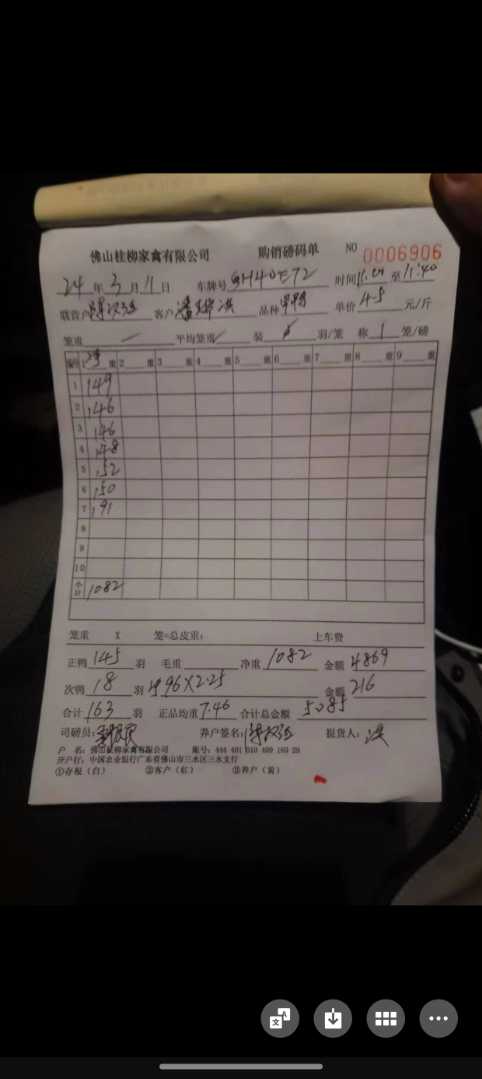 佛山桂柳家禽有限公司 购销磅码单 NO 0006906
24 年 3 月 11 日 车牌号 时间 至 11:40
联营户 客户 品种 单价 4.5 元/斤
笼重 平均笼重 装 羽/笼 称 1 笼/磅
编号 净 重 2 重 3 重 4 重 5 重 6 重 7 重 8 重 9 重
1 149
2 146
3 146
4 148
5 152
6 150
7 191
8
9
10
小计 1082
笼重 X 笼=总皮重: 上车费
正鸭 145 羽 毛重 净重 1082 金额 4869
次鸭 18 羽 96X2.25 金额 216
合计 163 羽 正品均重 7.46 合计总金额 5085
司磅员: 养户签名: 提货人:
户 名: 佛山桂柳家禽有限公司 账号:
开户行: 中国农业银行广东省佛山市三水区三水支行
①存根(白) ②客户(红) ③养户(黄)